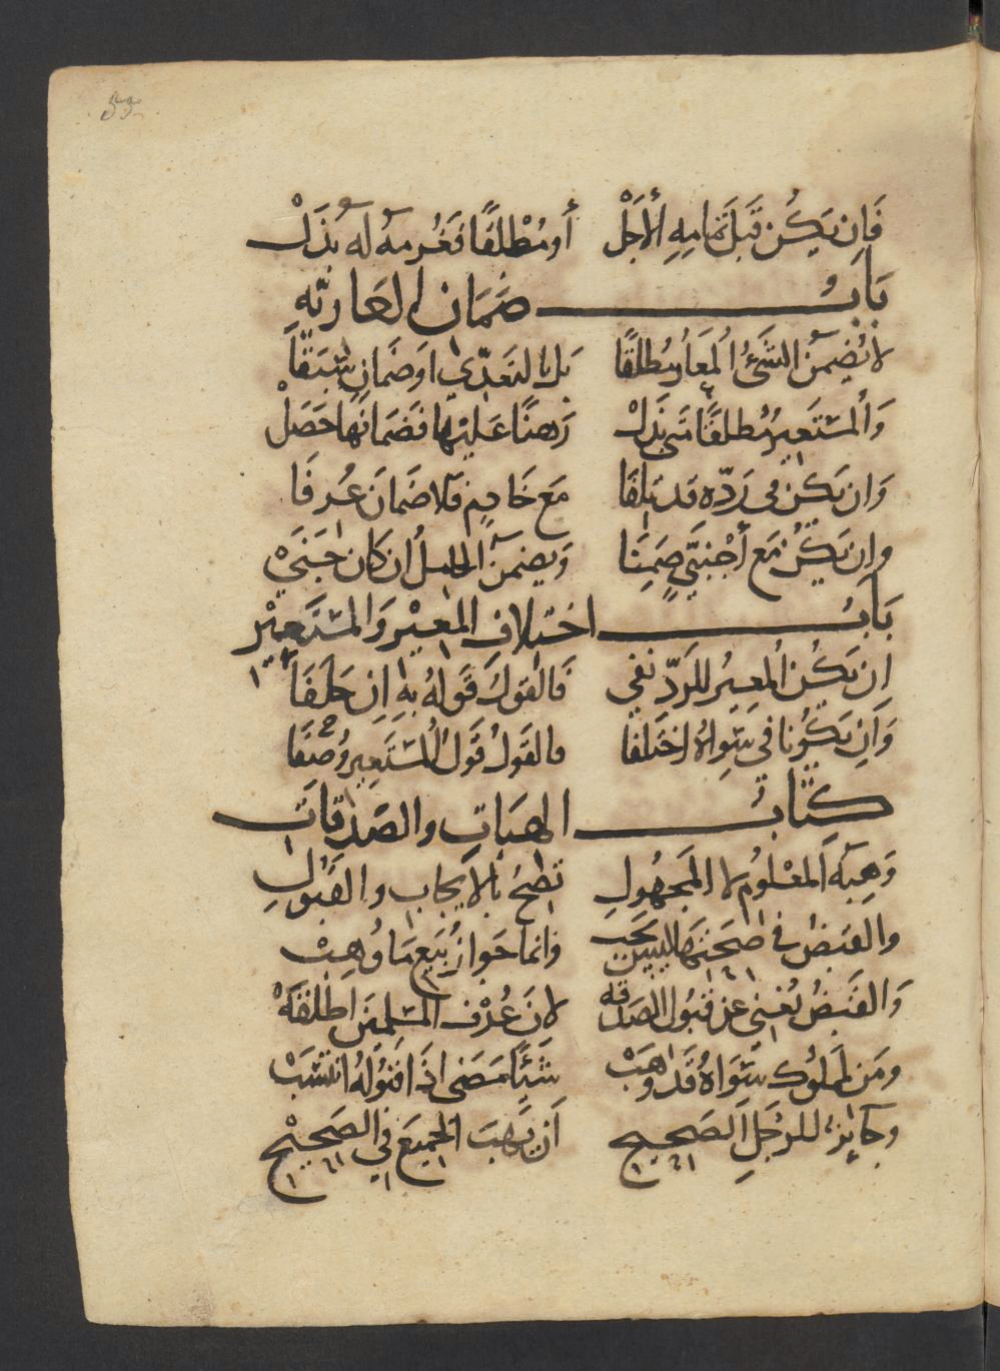 فَإِن يَكُن قَبلَ تَمامِهِ الأَجَلْ أَو مُطْلَقًا فَغُرمهُ لَه بُذَلْ
بَابُ ضَمَان العَاريّه
لا يُضمَنُ الشَّئُ المُعَار مُطلقًا بَل بالتعَدّي اوضَمَانٍ سَبَقَا
وَالمستَعيرُ مُطلقًا مَتى بَذَلْ رَهنًا عَليْها فَضَمَانُها حَصَلْ
وَان يَكن في رَدّه قد تلفَا مَع خَادِمٍ فَلا ضَمَانَ عُرفَا
وان يَكُن مَع أَجْنبيٍّ ضَمِنَا وَيضمَنُ ان كَان جَنَيْ
بَابُ اختلافِ المعيْر وَالمستَعيْر
ان يَكُن المُعيرُ للرَدّ نفي فَالقولُ قَولُهُ بهِ ان حَلَفَا
وَانْ يَكُونَا في سِوَاهُ اختَلفا فالقَولُ قَولُ المُستَعير وُصِفَا
كتَابُ الهبَاتِ والصَدقات
وَهِبَةُ المعْلُومِ لا المَجهُولِ تصِحُ بالايجَابِ والقَبُولِ
والقبضُ في صحَتهَا ليسَ يَجبْ وانما جَوازُ بَيعِ مَا وُهِبْ
وَالقَبضُ يُغنى عن قبُول الصَدقه لانَ عُرْفَ المسلمينَ اطلقَهْ
ومَن لمملُوكٍ سِوَاهُ قَد وَهَبْ شَيئًا مَضى اذَا قبُولهُ انتسَبْ
وجَائزٌ للرجُلِ الصَحيحِ أَن يَهبَ الجميعَ في الصَحيْحِ